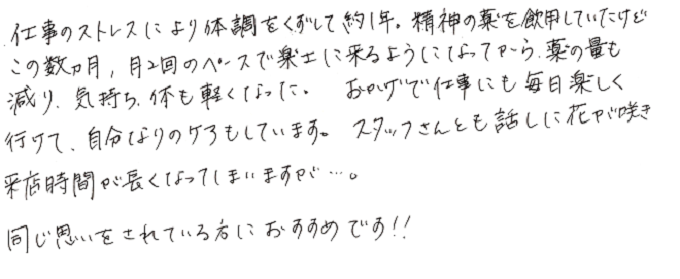 仕事のストレスにより体調をくずして約1年。精神の薬を飲用していたけど
この数ヵ月、月2回のペースで楽士に来るようになってから、薬の量も
減り、気持ち、体も軽くなった。 おかげで仕事にも毎日楽しく
行けて、自分なりのケアもしています。 スタッフさんとも話しに花が咲き
来店時間が長くなってしまいますが…。
同じ思いをされている方におすすめです!!